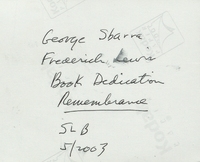 George Sbarra
Frederich Lewis
Book Dedication
Remembrance
SLB
5/2003